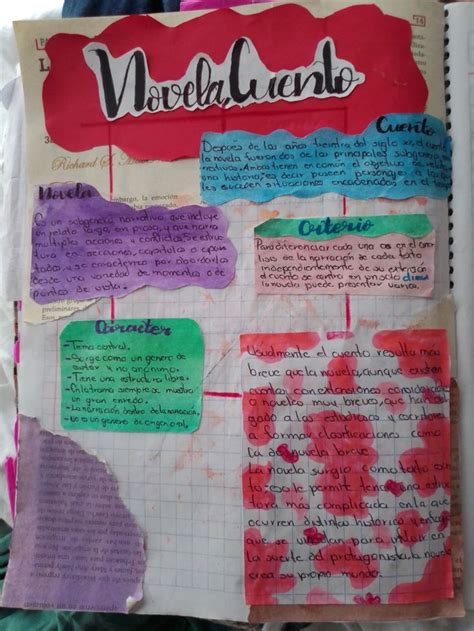 Novela, Cuento
Cuento
Después de los años treinta del siglo XX, el cuento y
la novela fueron dos de los principales subgéneros na-
rrativos. Ambos tienen en común el objetivo de
una historia, es decir poseen personajes a los
les suceden situaciones encadenadas en el tiempo
Richard S.
Novela
Es un subgénero narrativo que incluye
un relato largo, en prosa, y que narra
múltiples acciones y conflictos. Se estruc
tura en secciones, capítulos o apar
tados, y se caracteriza por abordarlos
desde una variedad de momentos o de
puntos de vista.
Criterio
Para diferenciar cada uno es en el
de la narración de cada texto
independientemente de su extensión
el cuento se centra en un solo
la novela puede presentar varios.
Caracter
- Tema central.
- Surge como un género de
autor y no anónimo.
- Tiene una estructura libre.
- En la trama siempre se muestra
un gran enredo.
- La narración dentro de la narración.
- No es un género de origen oral.
Usualmente el cuento resulta mas
breve que la novela, aunque existen
cuentos con extensiones
o novelas muy breves, que han
gado a los estudiosos y escritores
formar clasificaciones como
la de novela breve.
La novela surgió como texto
to; eso le permite tener una estruc
tura más complicada en la que
ocurren distintas historias y en
que se vinculan para influir en
la suerte del protagonista, la novela
crea su propio mundo.